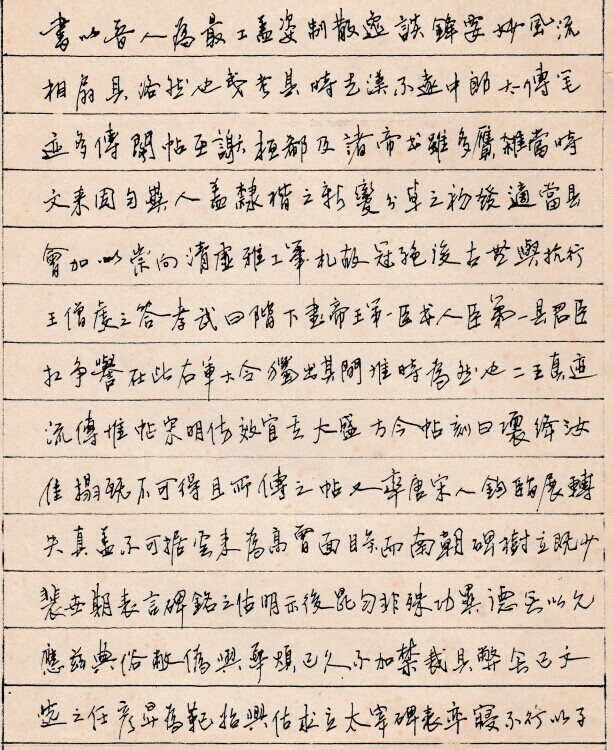 書以晉人為最工蓋姿制散逸談鋒要妙風流
相扇其俗然也夷考其時去漢不遠中郎太傅筆
迹多傳閣帖王謝桓郗及諸帝書雖多贗雜當時
文采固自異人蓋隸楷之新變分草之初發適當其
會加以崇向清虛雅工筆札故冠絕後古無與抗行
王僧虔之答孝武曰陛下書帝王第一臣書人臣第一其君臣
相爭譽在此右軍大令獨出其間惟時為然也二王真迹
流傳惟帖宋明仿效宜其大盛方今帖刻日壞絳汝
佳搨既不可得且所傳之帖又率唐宋人鉤臨展轉
失真蓋不可據雲來為高曾面目矣而南朝碑樹立既少
裴世期表言碑銘之作明示後昆自非殊功異德无以允
應茲典俗敝偽興華煩已久不加禁裁其弊無已文
選之任彥昇為範始興作求立太宰碑表卒寢不行以子